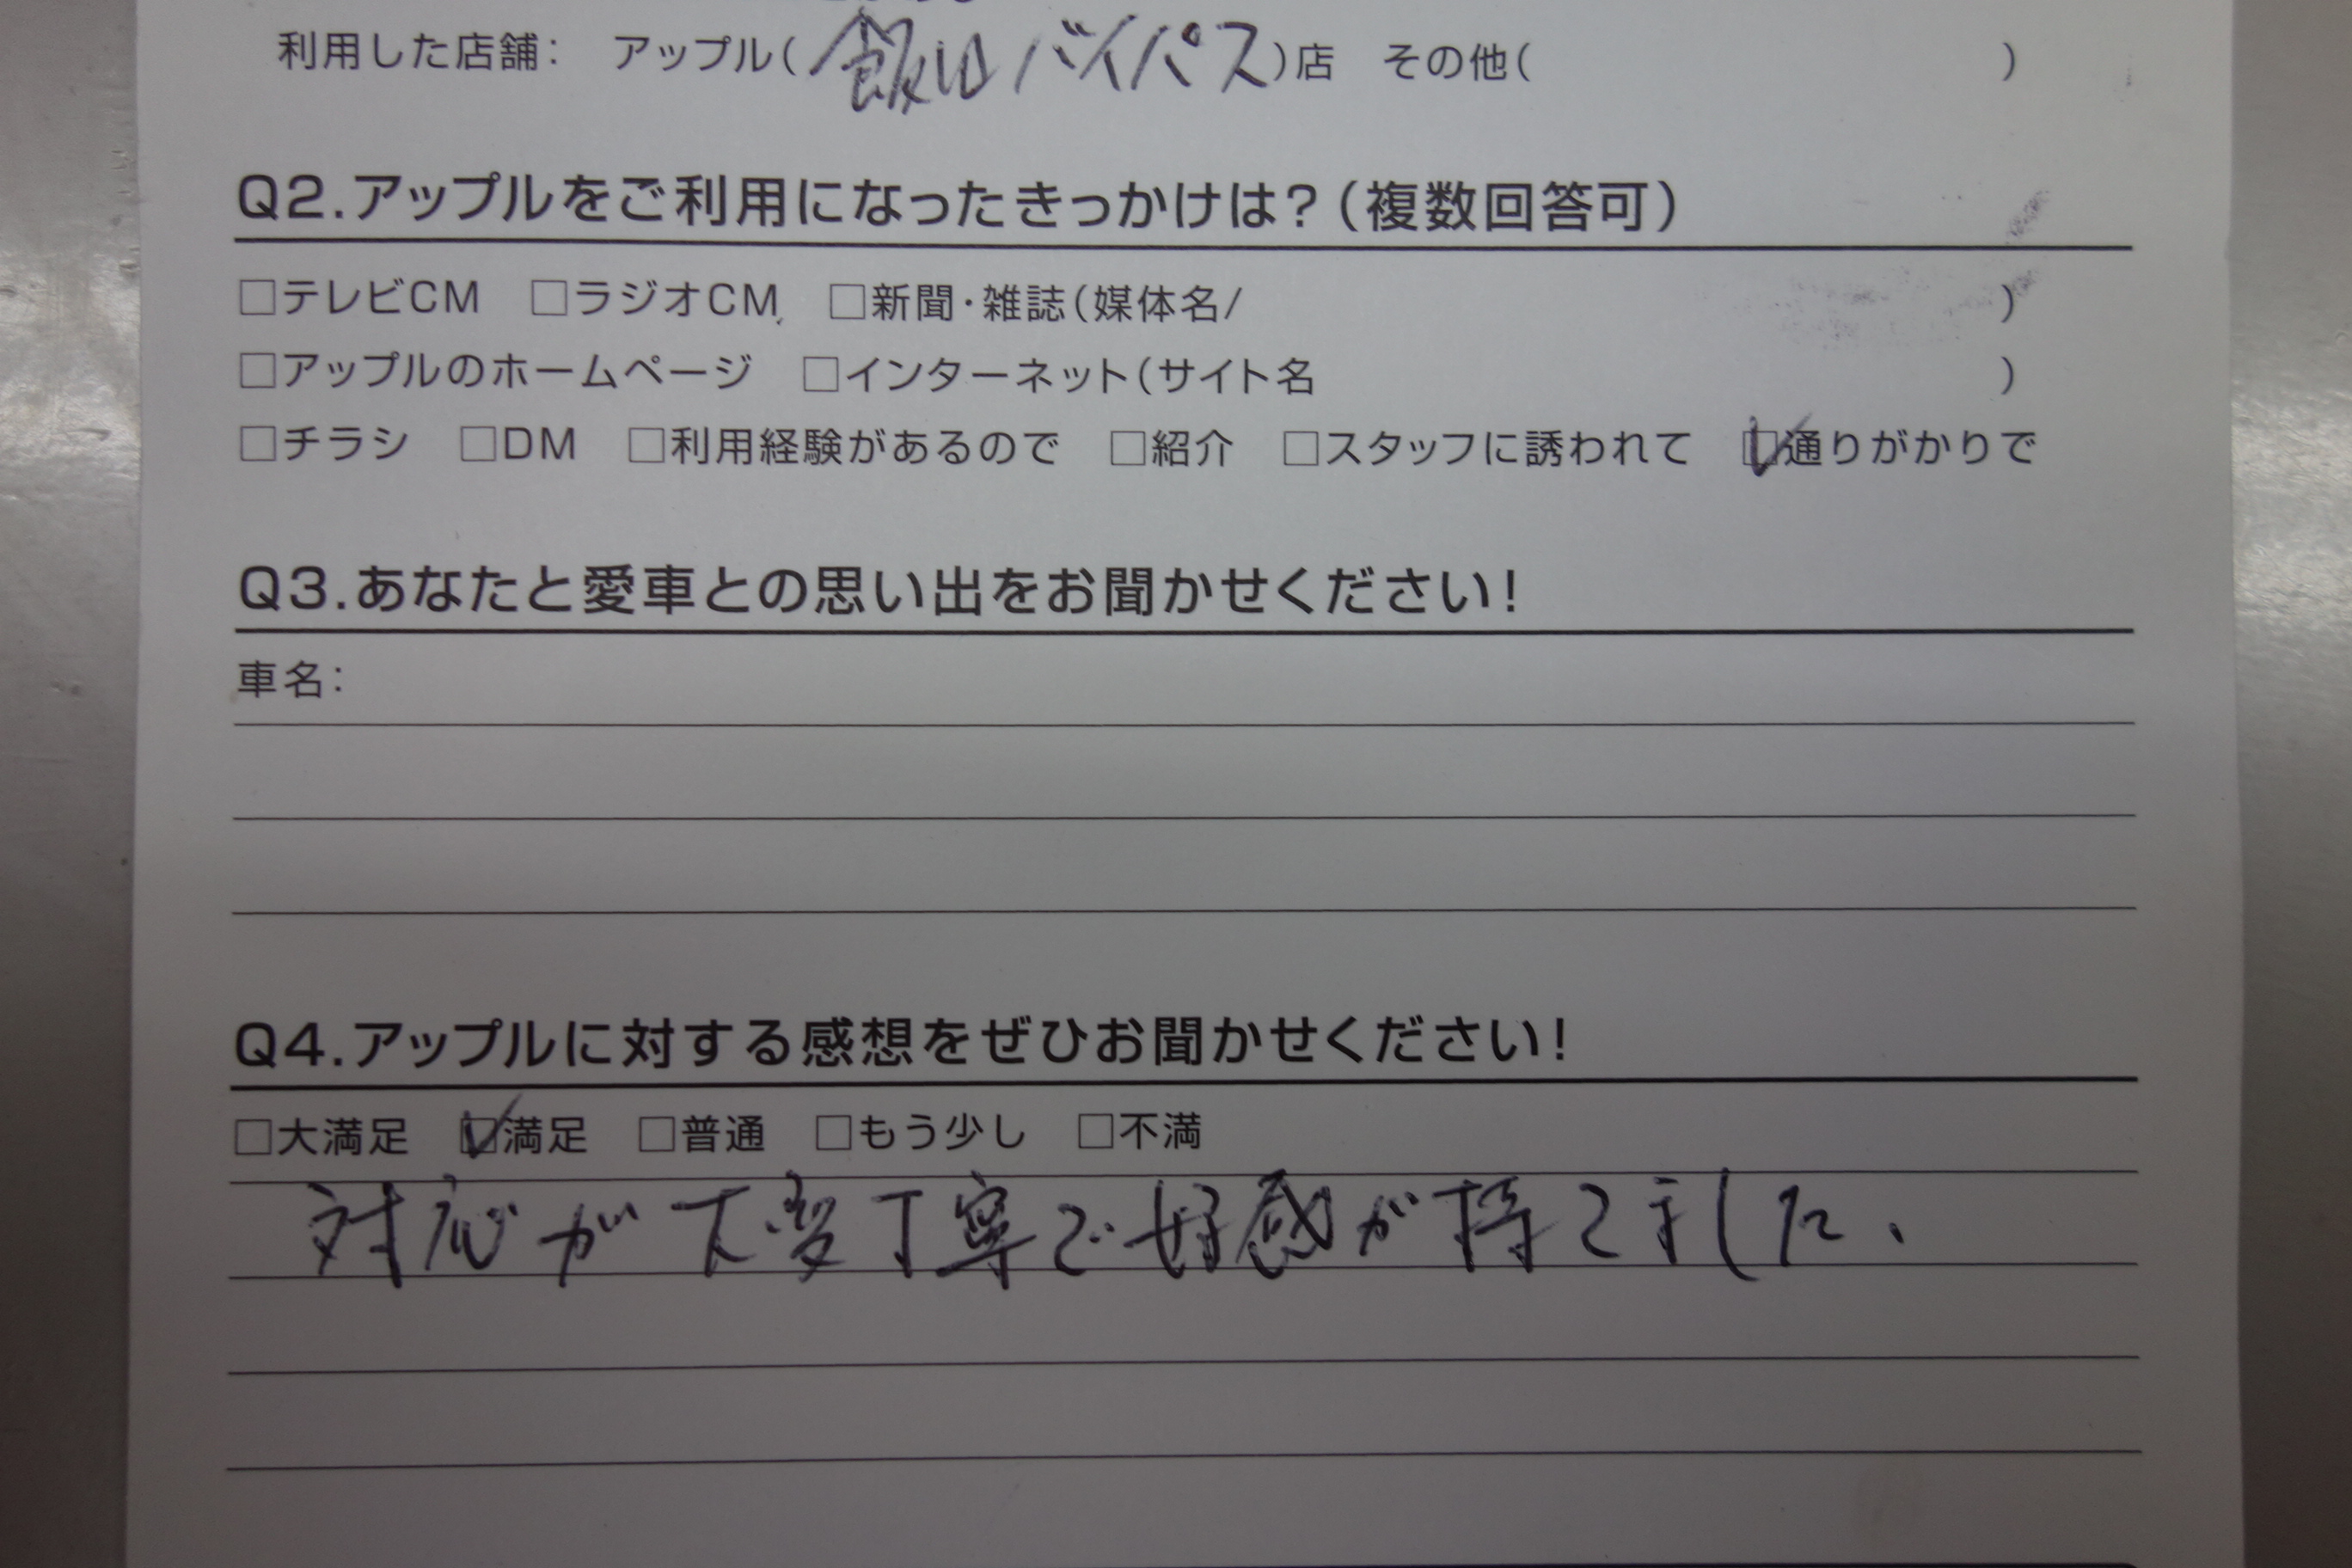 利用した店舗： アップル(飯山バイパス)店 その他( )
Q2.アップルをご利用になったきっかけは？(複数回答可)
□テレビCM □ラジオCM □新聞・雑誌(媒体名/ )
□アップルのホームページ □インターネット(サイト名 )
□チラシ □DM □利用経験があるので □紹介 □スタッフに誘われて ☑通りがかりで
Q3.あなたと愛車との思い出をお聞かせください！
車名：
Q4.アップルに対する感想をぜひお聞かせください！
□大満足 ☑満足 □普通 □もう少し □不満
対応が大変丁寧で好感が持てました、